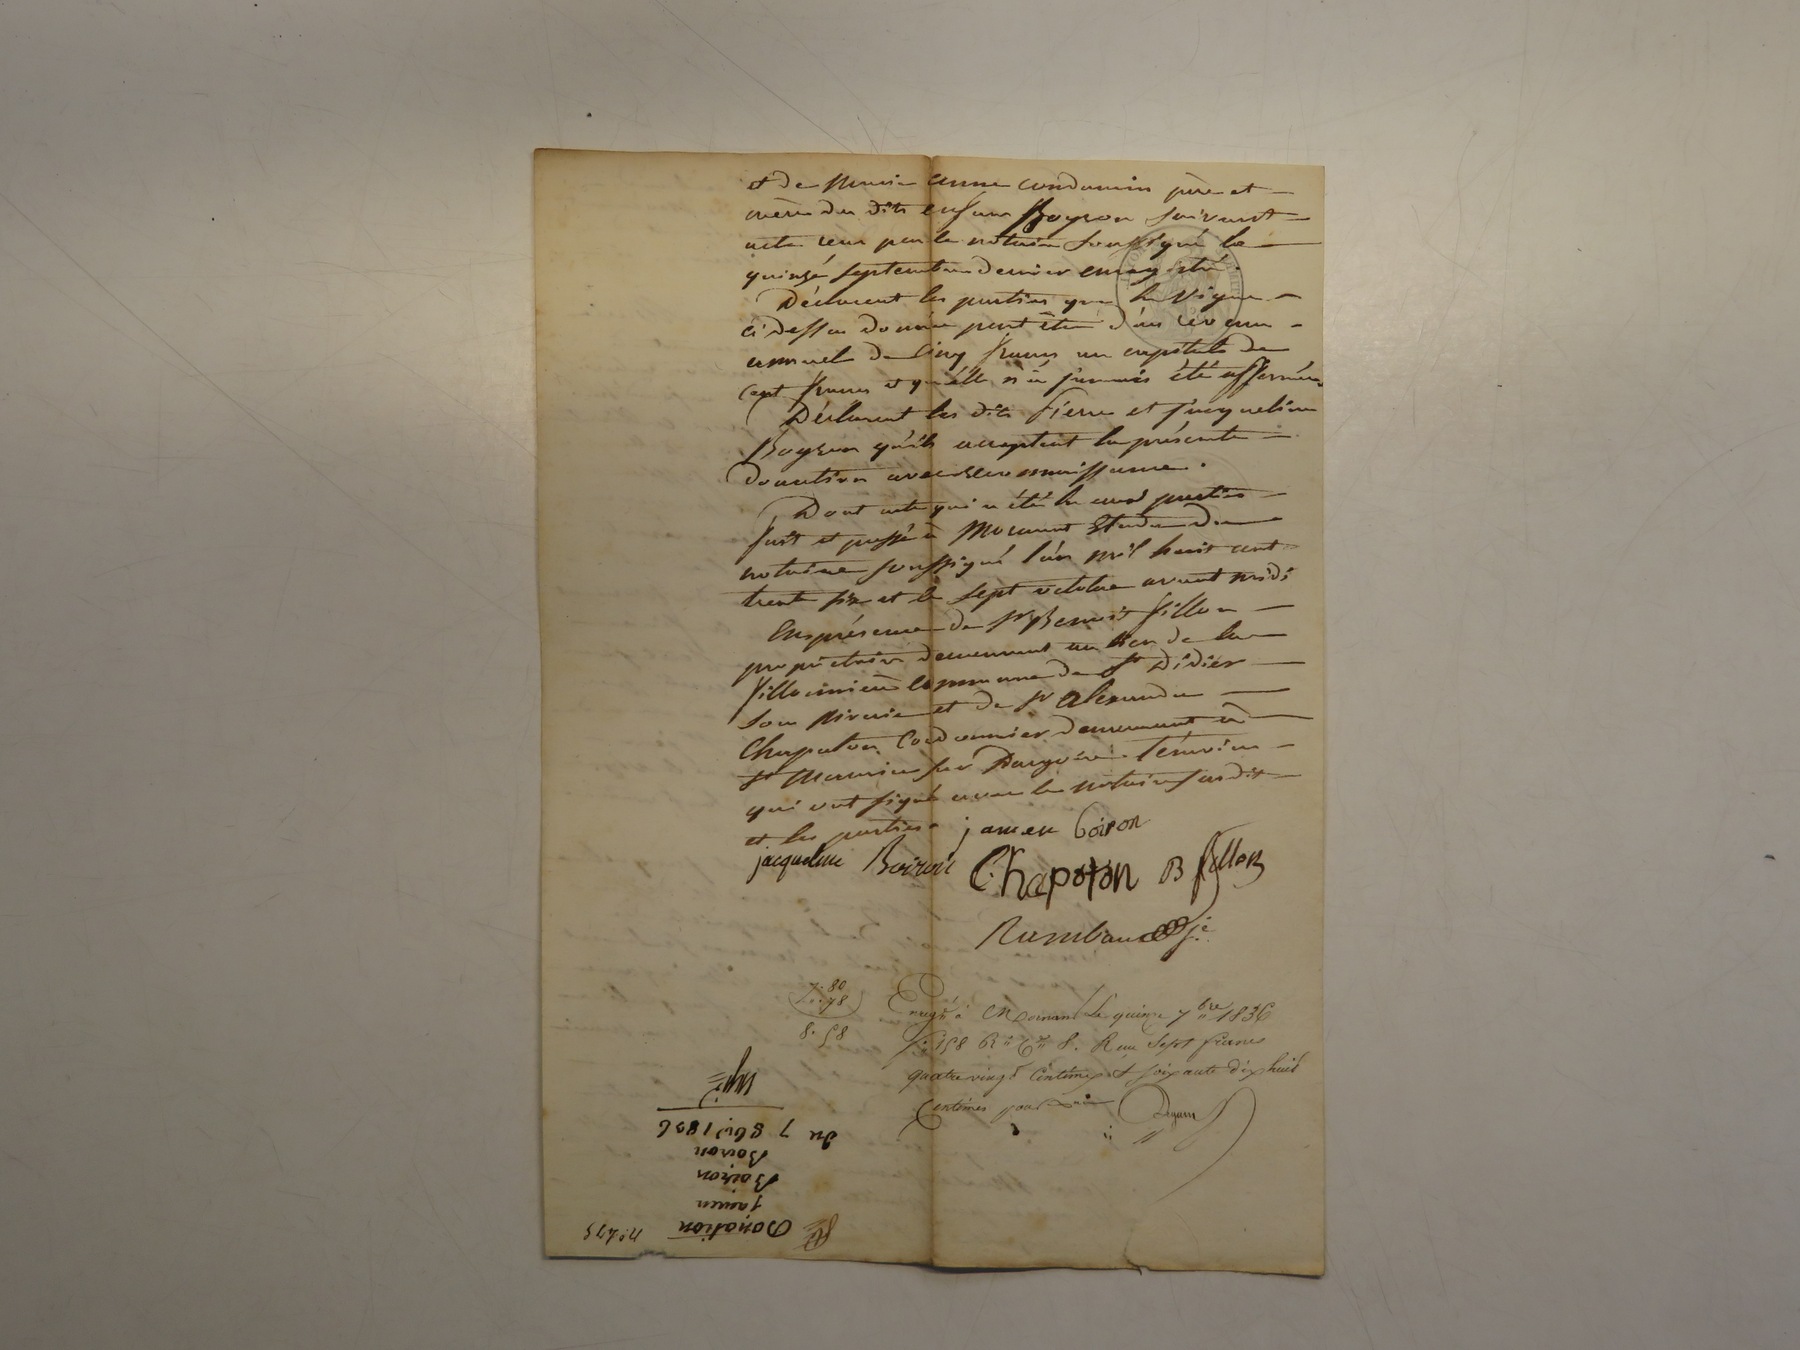 et de Marie Anne Condamin père et
mère des dits enfans Boyron suivant
acte reçu par le notaire soussigné le
quinze septembre dernier enregistré.
Déclarent les parties que la vigne
ci dessus donnée peut être d'un revenu
annuel de cinq francs un capital de
cent francs et qu'elle n'a jamais été affermée
Déclarent les dits Pierre et Jacqueline
Boyron qu'ils acceptent la présente
donation avec reconnaissance.
Dont acte qui a été lu aux parties
fait et passé à Mornant Etude du
notaire soussigné l'an mil huit cent
trente six et le sept octobre avant midi
En présence de sr Benoit fillon
propriétaire demeurant au lieu de la
fillonnière commune de St Didier
sous Riverie et de sr Alexandre
Chapoton Cordonnier demeurant à
St Maurice sur Dargoire témoins
qui ont signé avec le notaire susdit
et les parties. jamen boiron
jacqueline Boiron Chapoton B fillon
7.80
.78
8.58
Enregé à Mornant Le quinze 1836
fo 158 Ro Ces 8. Reçu Sept francs
quatre vingt Centimes et soixante dix huit
Centimes pour
du 7 8bre 1836
Boiron
Boiron
jamen
Donation